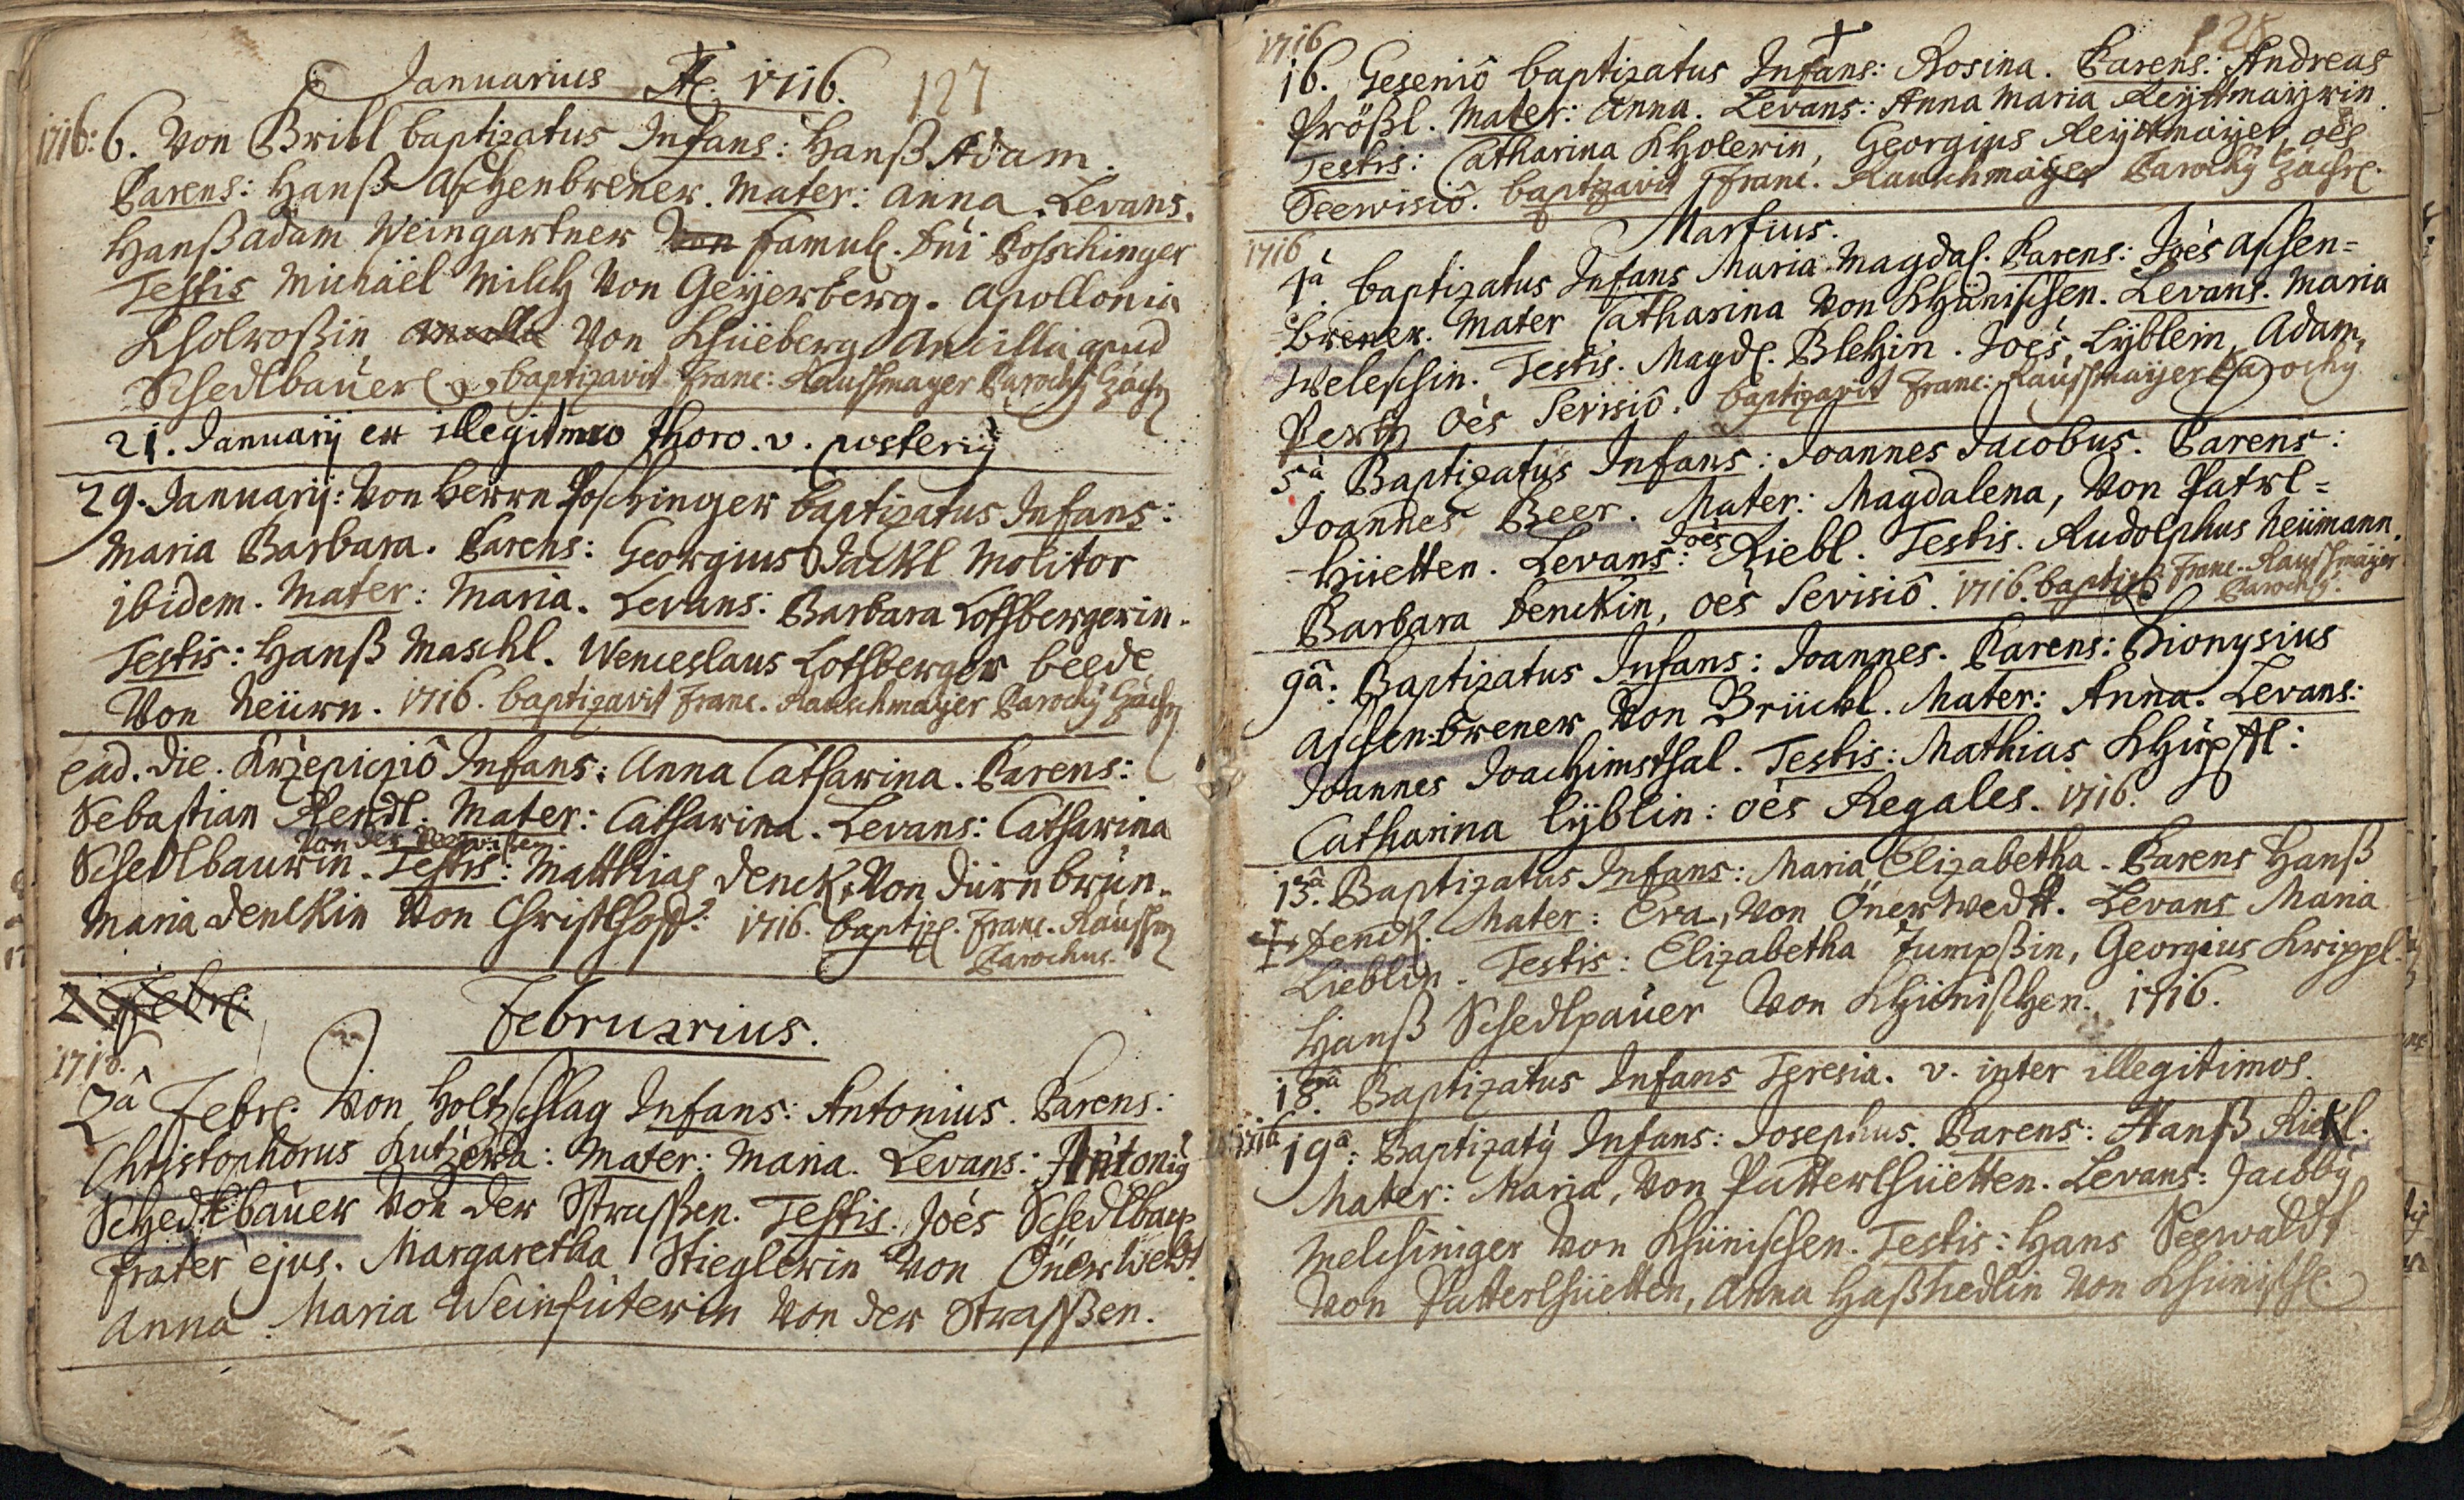 Januarius Aõ. 1716. 127
1716: 6. Von Brikl baptizatus Infans: Hanß Adam.
Parens: Hanß Aschenbrener. Mater: Anna. Levans.
Hanß Adam Weingartner von famul. Dñi Poschinger
Testis Michaël Milch Von Geyerberg. Apollonia
Kholroßin Ancilla Von Khüeberg Ancilla apud
Schedlbauer baptizavit Franc: Rauschmayer Parochý
21. Januarij ex illegitimo thoro. v. posterig
29. Januarij: Von Herrn Poschinger baptizatus Infans:
Maria Barbara. Parens: Georgius Jackl Molitor
ibidem. Mater: Maria. Levans: Barbara Lothbergerin.
Testis: Hanß Maschl. Wenceslaus Lothberger beede
Von Neüern. 1716. baptizavit Franc. Rauschmayer Parochý
ead. die. Krzepiczio Infans: Anna Catharina. Parens:
Sebastian Rendl. Mater: Catharina. Levans: Catharina
Von der Seewisen
Schedlbaurin. Testis: Matthias Denck, Von Dürnbrun.
Maria Denckin Von Christlhoff: 1716. baptiz. Franc. Rausch
Parochus.
2 Febr:
Februarius.
1716.
2â Febr. Von Holtzschlag Infans: Antonius. Parens:
Christophorus Kutzewa: Mater: Maria. Levans: Antoniý
Schedlbauer Von der Strassen. Testis. Joês Schedlbau
frater ejus. Margaretha Stieglerin Von Önerwedt.
Anna Maria Weinfüterin Von der Strassen.
1716 128
16. Gesenio baptizatus Infans: Rosina. Parens: Andreas
Prößl. Mater: Anna. Levans: Anna Maria Reyttmayrin.
Testis: Catharina Kholerin, Georgius Reyttmayer, oês
Seewisiô. baptizavit Franc. Rauschmayer Parochý
1716 Martius.
4â. baptizatus Infans Maria Magdal. Parens: Joês Aschen=
brener. Mater Catharina Von Khünischen. Levans. Maria
Welchin. Testis. Magdl. Blehin. Joês, Lyblein, Adam
Pertl oês Sevisiô. baptizavit Franc: Rauschmayer Parochý
5â. Baptizatus Infans: Joannes Jacobus. Parens:
Joannes Beer. Mater: Magdalena, Von Patrl=
Joês
hüetten. Levans: Riebl. Testis. Rudolphus Neümann.
Barbara Denckin, oês Sevisiô. 1716. baptiz. Franc. Rauschmayer
Parochý.
9â. Baptizatus Infans: Joannes. Parens: Dionysius
Aschen=brener Von Brückl. Mater: Anna. Levans:
Joannes Joachimsthal. Testis: Mathias Khüpfl:
Catharina Lyblin: oês Regales. 1716.
13â. Baptizatus Infans: Maria Elizabetha. Parens Hanß
Denck. Mater: Eva, Von Önerwedt. Levans Maria
Lieblin. Testis: Elizabetha Zumpßin, Georgius Krippl.
Hanß Schedlpauer Von Khünischen. 1716.
18â Baptizatus Infans Teresia. v. inter illegitimos.
1716 19â: Baptizatý Infans: Josephus. Parens: Hanß Riekl.
Mater: Maria, Von Putterlhüetten. Levans: Jacobý
Melchiniger Von Khünischen. Testis: Hans Seewaldt
Von Patterlhüetten, Anna Haßhiedlin Von Khünisch.